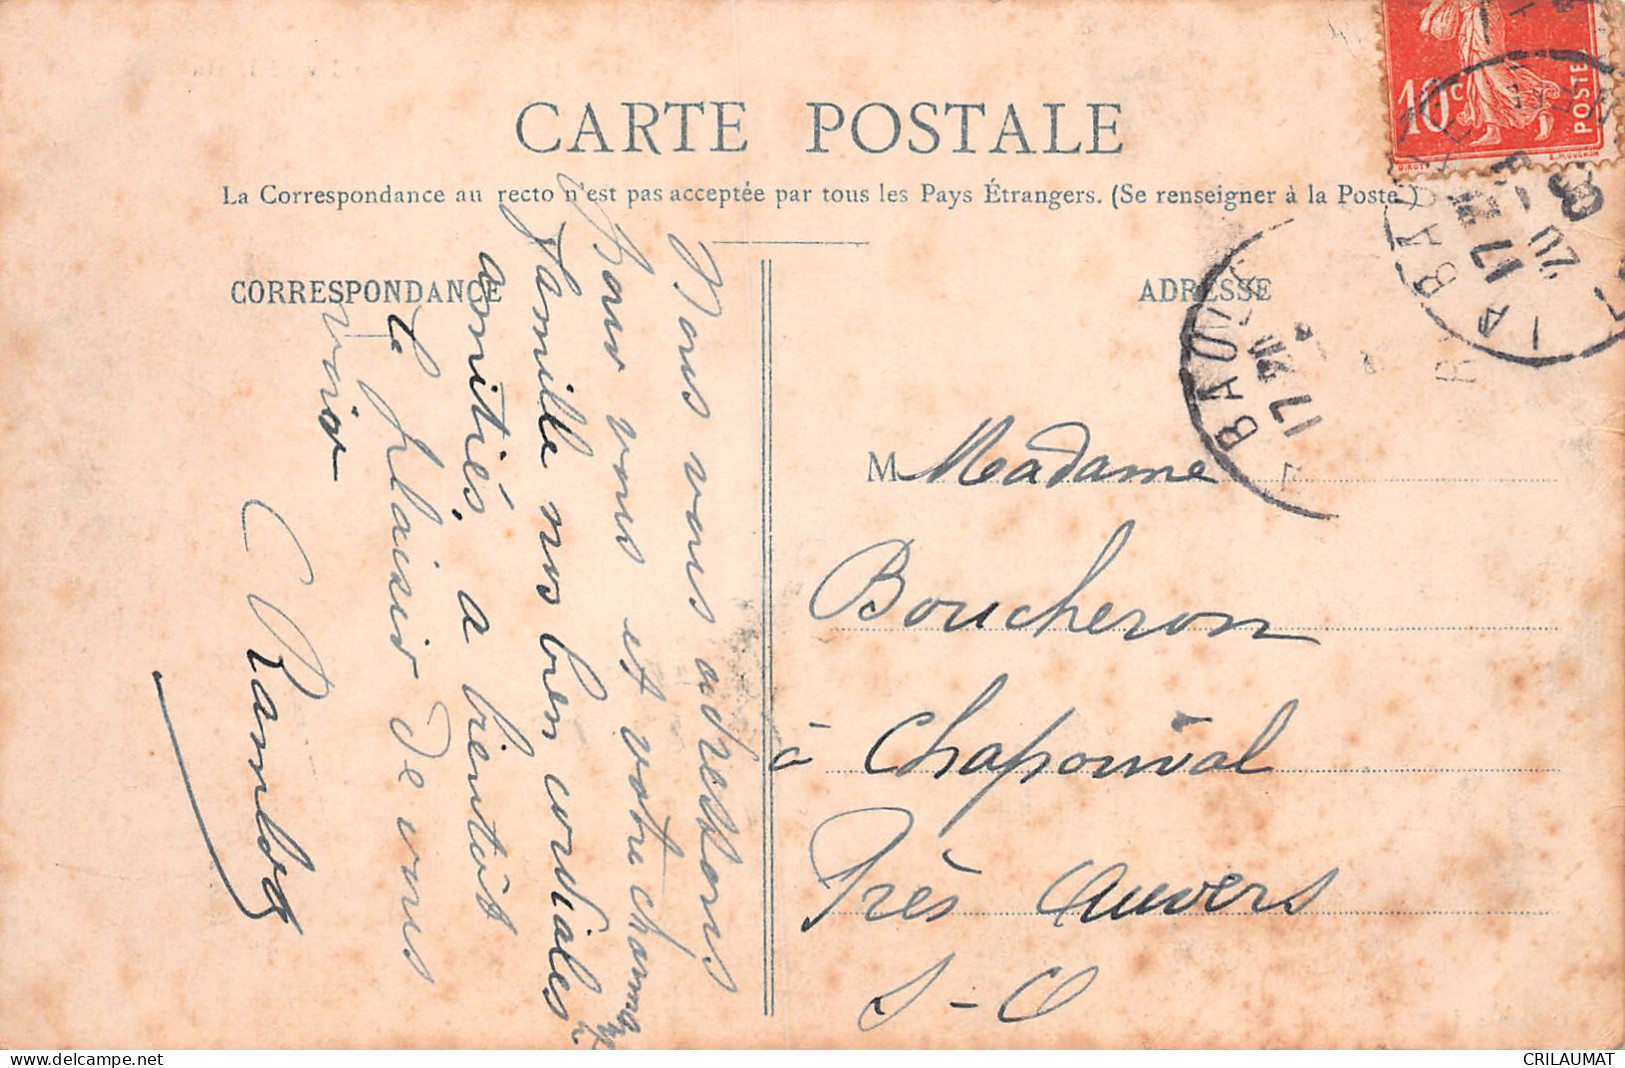 CARTE POSTALE
La Correspondance au recto n'est pas acceptée par tous les Pays Étrangers. (Se renseigner à la Poste.)
CORRESPONDANCE
Nous vous adressons
Pour vous et votre charmante
famille nos bien cordiales
amitiés, a bientôt
le plaisir de vous
voir
ADRESSE
M Madame
Boucheron
à Chaponval
Près Auvers
S-O
10c
POSTE
LA BAULE
17
20
LA BAULE
17
20
delcampe.net
CRILAUMAT